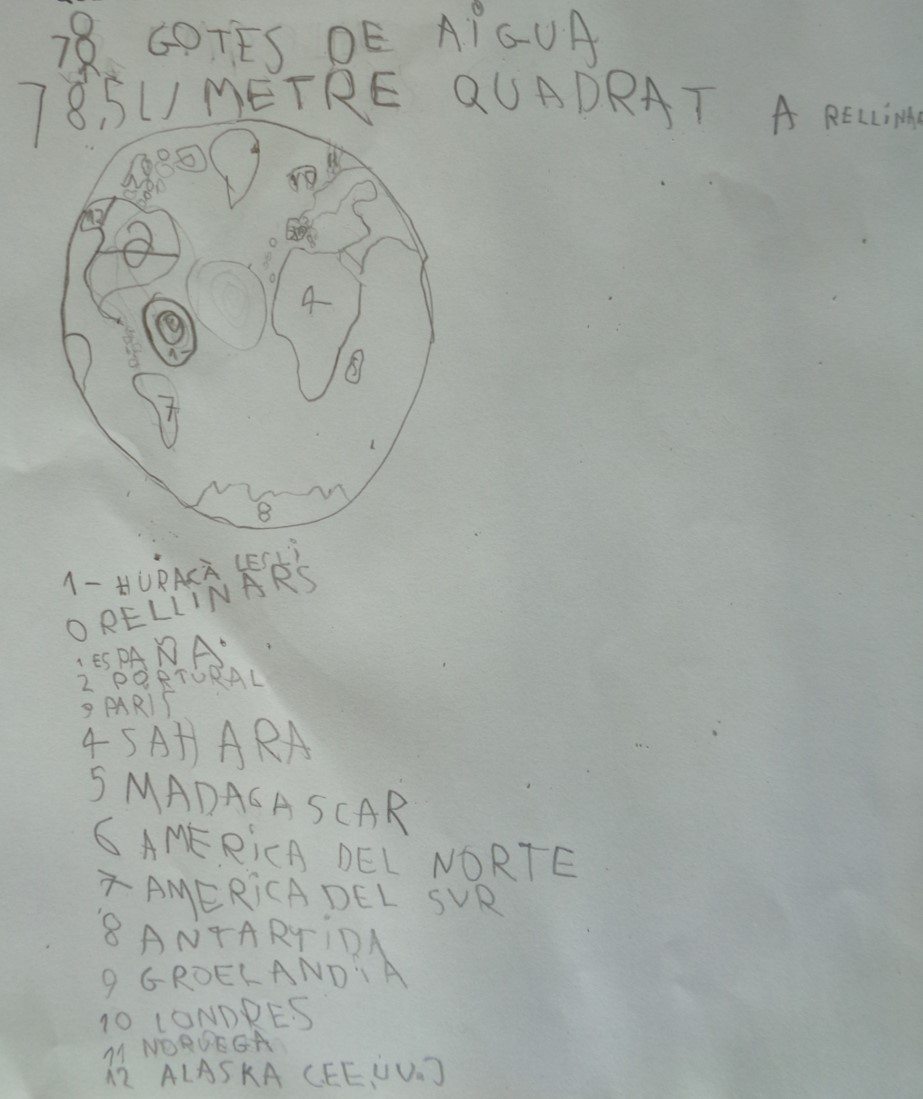 78 GOTES DE AIGUA
78,5 L/METRE QUADRAT A RELLINA
12
10
4
1-
5
7
8
1- HURACÀ LESLI
0 RELLINARS
1 ESPAÑA
2 PORTURAL
9 PARIS
4 SAHARA
5 MADAGASCAR
6 AMERICA DEL NORTE
7 AMERICA DEL SUR
8 ANTARTIDA
9 GROELANDIA
10 LONDRES
11 NORUEGA
12 ALASKA (EE,UU.)